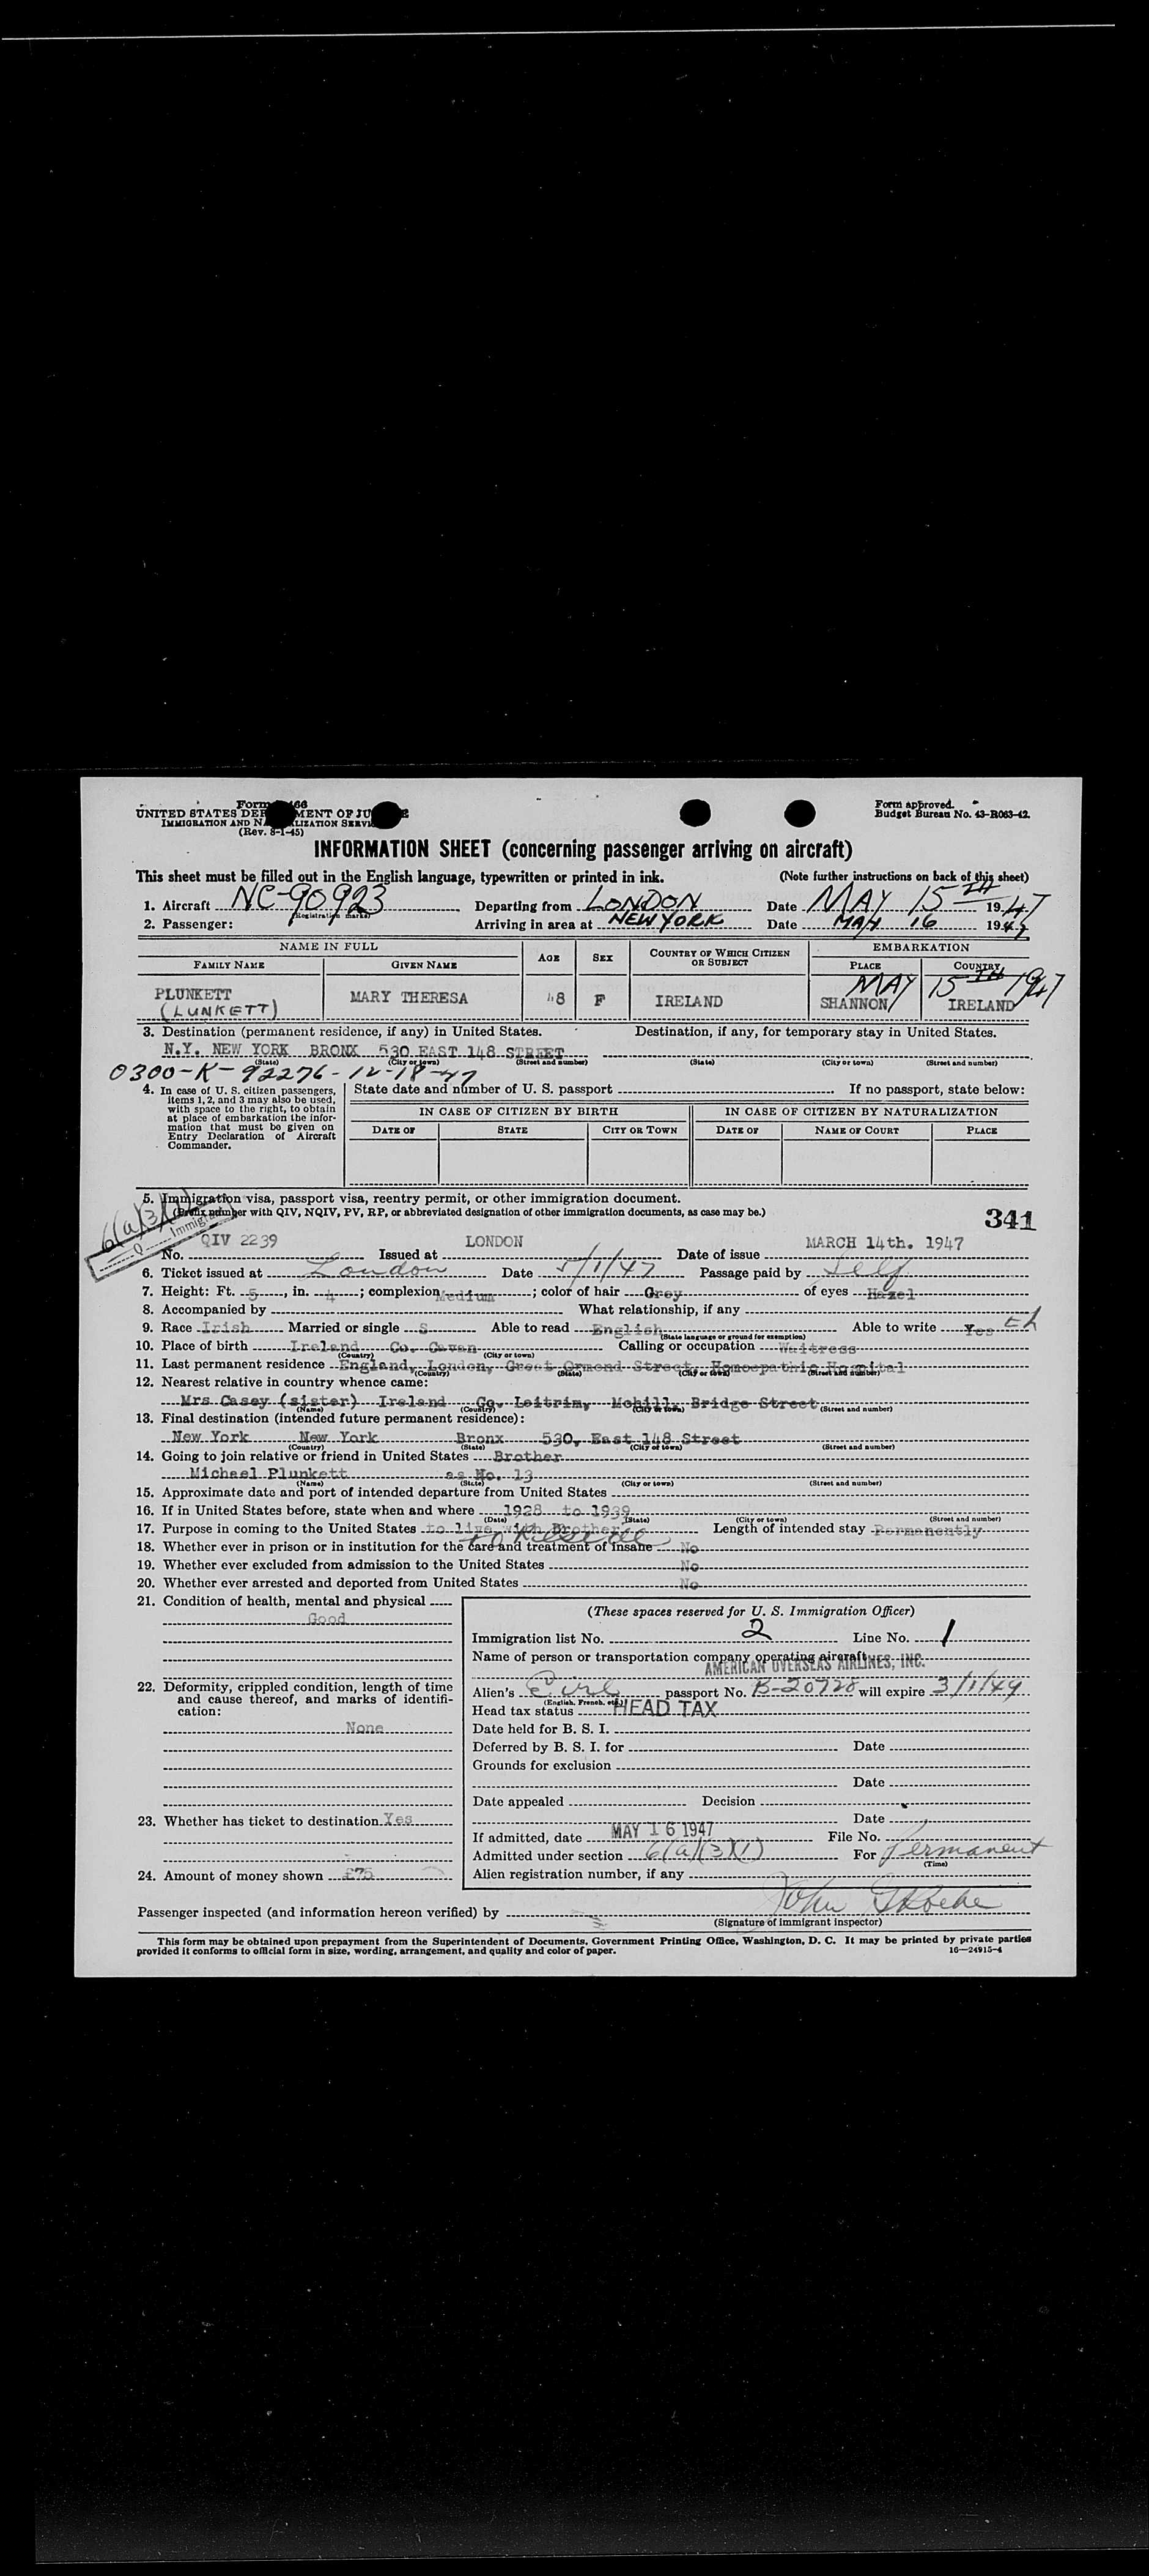 Form 466
UNITED STATES DEPARTMENT OF JUSTICE
IMMIGRATION AND NATURALIZATION SERVICE
(Rev. 8-1-45)
Form approved.
Budget Bureau No. 43-R063-42.
INFORMATION SHEET (concerning passenger arriving on aircraft)
This sheet must be filled out in the English language, typewritten or printed in ink. (Note further instructions on back of this sheet)
1. Aircraft NC-90923 Departing from LONDON Date MAY 15TH 1947
(Registration marks)
2. Passenger: Arriving in area at NEW YORK Date MAY 16 1947
NAME IN FULL AGE SEX COUNTRY OF WHICH CITIZEN OR SUBJECT EMBARKATION
FAMILY NAME GIVEN NAME PLACE COUNTRY
MAY 15TH 1947
PLUNKETT MARY THERESA 48 F IRELAND SHANNON IRELAND
(LUNKETT)
3. Destination (permanent residence, if any) in United States. Destination, if any, for temporary stay in United States.
N.Y. NEW YORK BRONX 530 EAST 148 STREET
(State) (City or town) (Street and number) (State) (City or town) (Street and number)
0300-K-92276-12-18-47
4. In case of U. S. citizen passengers, items 1, 2, and 3 may also be used, with space to the right, to obtain at place of embarkation the information that must be given on Entry Declaration of Aircraft Commander.
State date and number of U. S. passport If no passport, state below:
IN CASE OF CITIZEN BY BIRTH IN CASE OF CITIZEN BY NATURALIZATION
DATE OF STATE CITY OR TOWN DATE OF NAME OF COURT PLACE
5. Immigration visa, passport visa, reentry permit, or other immigration document.
(Prefix number with QIV, NQIV, PV, RP, or abbreviated designation of other immigration documents, as case may be.)
341
6(a)(3)(1)
Q Immigrant
No. QIV 2239 Issued at LONDON Date of issue MARCH 14th. 1947
6. Ticket issued at London Date 5/1/47 Passage paid by Self
7. Height: Ft. 5, in. 4; complexion Medium; color of hair Grey of eyes Hazel
8. Accompanied by What relationship, if any
9. Race Irish Married or single S Able to read English Able to write Yes
(State language or ground for exemption)
10. Place of birth Ireland Co. Cavan Calling or occupation Waitress
(Country) (City or town)
11. Last permanent residence England, London, Great Ormond Street, Homoepathic Hospital
(Country) (State) (City or town) (Street and number)
12. Nearest relative in country whence came:
Mrs Casey (sister) Ireland Co. Leitrim, Mohill, Bridge Street
(Name) (Country) (City or town) (Street and number)
13. Final destination (intended future permanent residence):
New York New York Bronx 530, East 148 Street
(Country) (State) (City or town) (Street and number)
14. Going to join relative or friend in United States Brother
Michael Plunkett as No. 13
(Name) (State) (City or town) (Street and number)
15. Approximate date and port of intended departure from United States
16. If in United States before, state when and where 1928 to 1939
(Date) (State) (City or town) (Street and number)
17. Purpose in coming to the United States to live with Brother Length of intended stay Permanently
to Reside
18. Whether ever in prison or in institution for the care and treatment of insane No
19. Whether ever excluded from admission to the United States No
20. Whether ever arrested and deported from United States No
21. Condition of health, mental and physical
Good
22. Deformity, crippled condition, length of time and cause thereof, and marks of identification:
None
23. Whether has ticket to destination Yes
24. Amount of money shown £75
(These spaces reserved for U. S. Immigration Officer)
Immigration list No. 2 Line No. 1
Name of person or transportation company operating aircraft
AMERICAN OVERSEAS AIRLINES, INC.
Alien's Eire passport No. B-20728 will expire 3/1/49
(English, French, etc.)
Head tax status HEAD TAX
Date held for B. S. I.
Deferred by B. S. I. for Date
Grounds for exclusion
Date
Date appealed Decision
Date
If admitted, date MAY 16 1947 File No.
Admitted under section 6(a)(3)(1) For Permanent
(Time)
Alien registration number, if any
Passenger inspected (and information hereon verified) by John
(Signature of immigrant inspector)
This form may be obtained upon prepayment from the Superintendent of Documents, Government Printing Office, Washington, D. C. It may be printed by private parties
provided it conforms to official form in size, wording, arrangement, and quality and color of paper. 16—24915-4